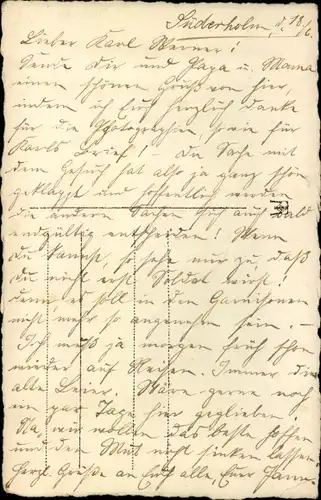 Süderholm, d. 18/6.
Lieber Karl Werner!
Sende Dir und Papa u. Mama
einen schönen Gruß von hier,
indem ich Euch herzlich danke
für die Photographien, sowie für
Karls Brief! – Die Sache mit
dem Gesuch hat also ja ganz schön
geklappt und hoffentlich werden
die anderen Sachen sich auch bald
endgültig entscheiden! Wenn
Du kannst, so sehe nur zu, daß
Du nicht erst Soldat wirst.
denn es soll in den Garnisonen
nicht mehr so angenehm sein. –
Ich muß ja morgen früh schon
wieder auf Reisen. Immer die
alte Leier. Wäre gerne noch
ein paar Tage hier geblieben.
Na, wir wollen das beste hoffen
und den Mut nicht sinken lassen.
Herzl. Grüße an Euch alle, Euer